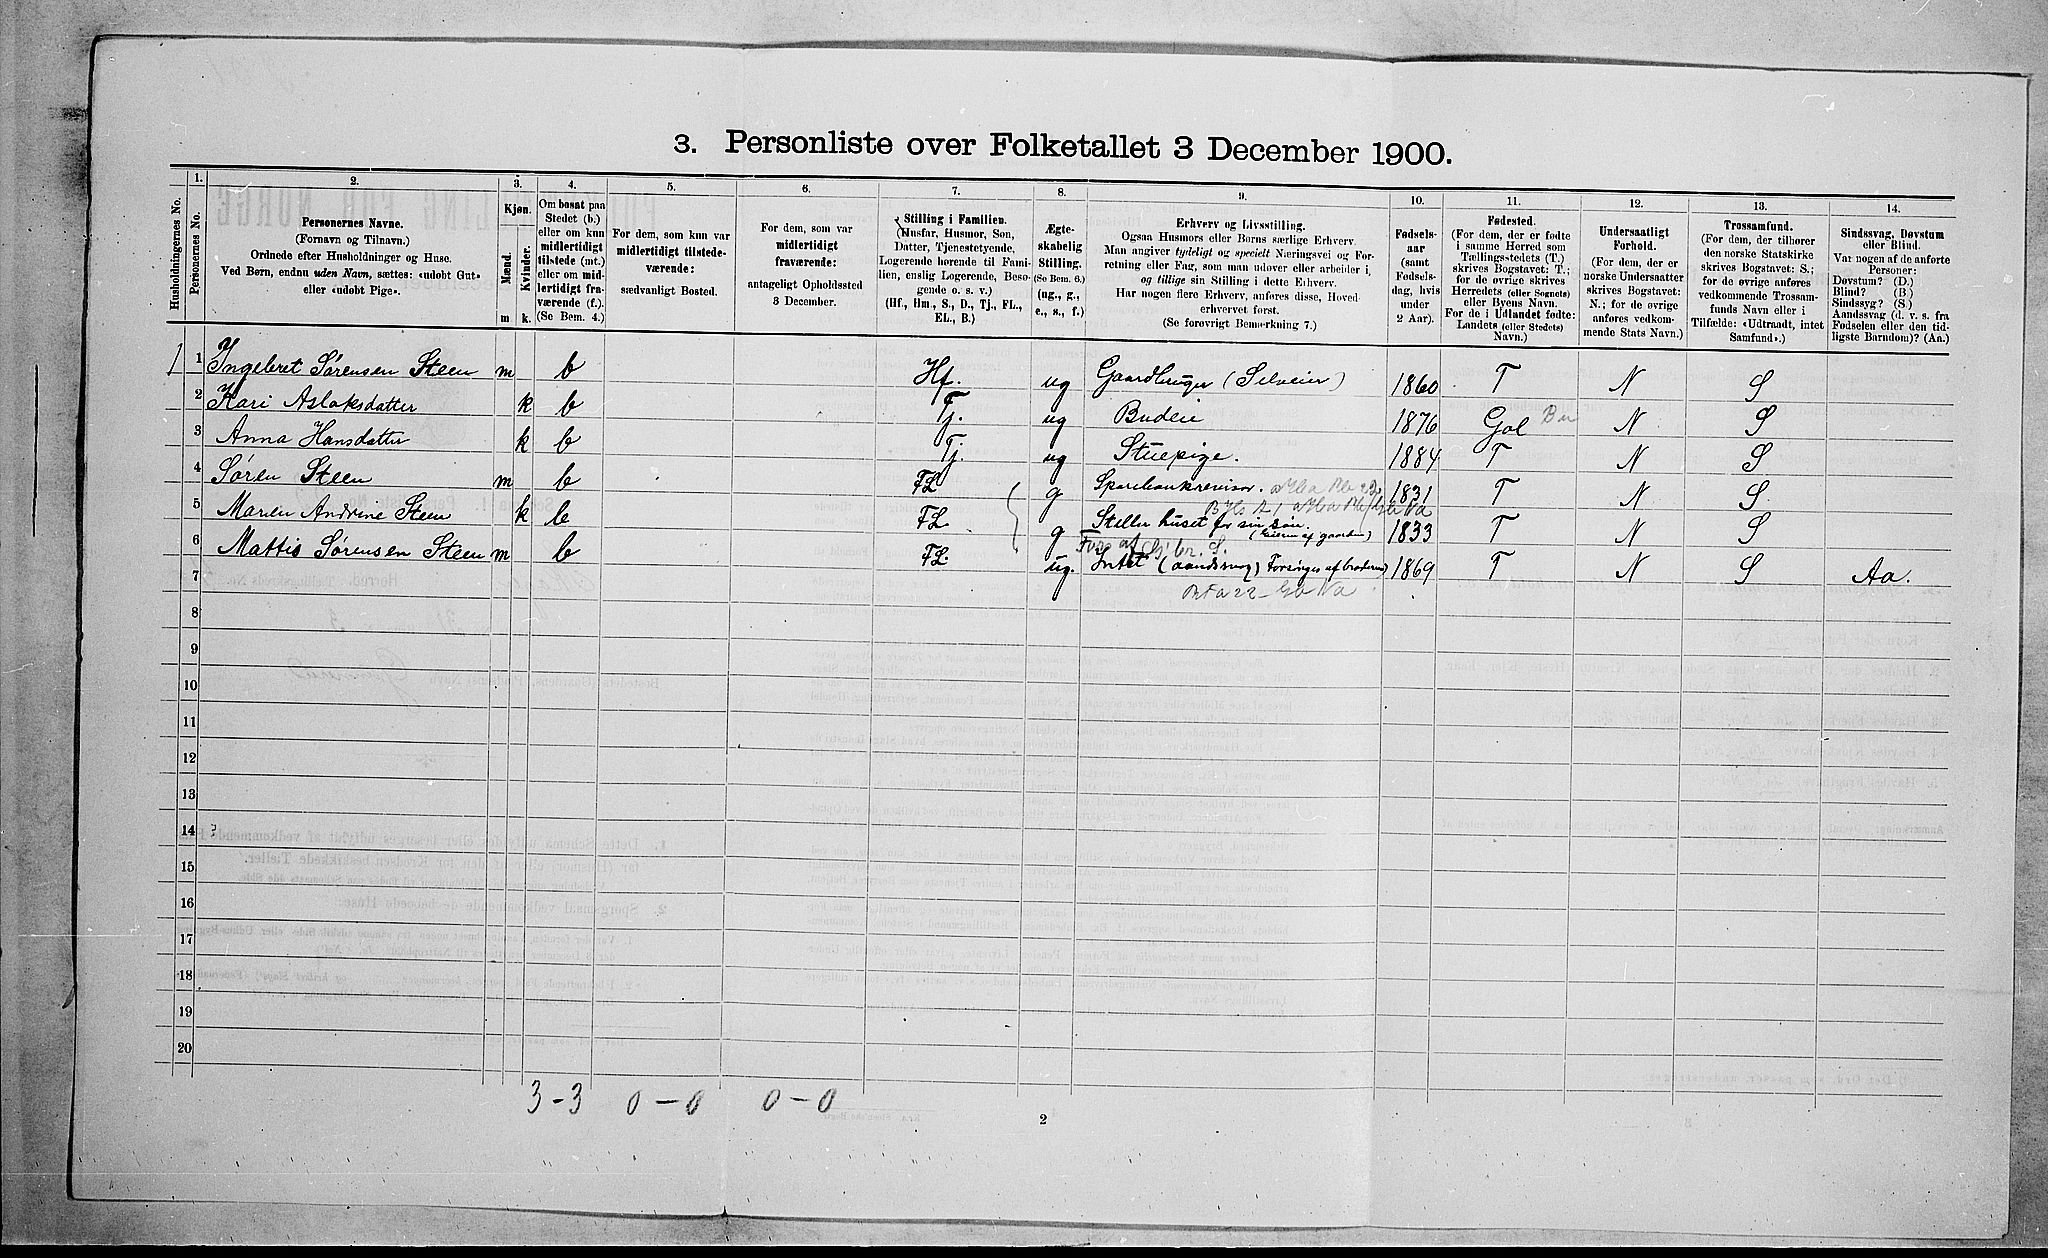 3. Personliste over Folketallet 3 December 1900.
Husholdningernes No.
1. Personernes No.
2. Personernes Navne.
(Fornavn og Tilnavn.)
Ordnede efter Husholdninger og Huse.
Ved Børn, endnu uden Navn, sættes: «udobt Gut»
eller «udobt Pige».
3. Kjøn.
Mænd. Kvinder.
m. k.
4.
Om bosat paa
Stedet (b.)
eller om kun
midlertidigt
tilstede (mt.)
eller om mid-
lertidigt fra-
værende (f.).
(Se Bem. 4.)
5.
For dem, som kun var
midlertidigt tilstede-
værende:
sædvanligt Bosted.
6.
For dem, som var
midlertidigt
fraværende:
antageligt Opholdssted
3 December.
7.
Stilling i Familien.
(Husfar, Husmor, Søn,
Datter, Tjenestetyende,
Logerende hørende til Fami-
lien, enslig Logerende, Besø-
gende o. s. v.)
(Hf., Hm., S., D., Tj., FL.,
EL., B.)
8.
Ægte-
skabelig
Stilling.
(Se Bem. 6.)
(ug., g.,
e., s., f.)
9.
Erhverv og Livsstilling.
Ogsaa Husmors eller Børns særlige Erhverv.
Man angiver tydeligt og specielt Næringsvei og For-
retning eller Fag, som man udøver eller arbeider i,
og tillige sin Stilling i dette Erhverv.
Har nogen flere Erhverv, anføres disse, Hoved-
erhvervet først.
(Se forøvrigt Bemerkning 7.)
10.
Fødsels-
aar
(samt
Fødsels-
dag, hvis
under
2 Aar).
11.
Fødested.
(For dem, der er fødte
i samme Herred som
Tællingsstedets (T.)
skrives Bogstavet: T.;
for de øvrige skrives
Herredets (eller Sognets)
eller Byens Navn.
For de i Udlandet fødte:
Landets (eller Stedets)
Navn.)
12.
Undersaatligt
Forhold.
(For dem, der er
norske Undersaatter
skrives Bogstavet:
N.; for de øvrige
anføres vedkom-
mende Stats Navn.)
13.
Trossamfund.
(For dem, der tilhører
den norske Statskirke
skrives Bogstavet: S.;
for de øvrige anføres
vedkommende Trossam-
funds Navn eller i
Tilfælde: «Udtraadt, intet
Samfund».)
14.
Sindssvag, Døvstum
eller Blind.
Var nogen af de anførte
Personer:
Døvstum? (D.)
Blind? (B.)
Sindssyg? (S.)
Aandssvag (d. v. s. fra
Fødselen eller den tid-
ligste Barndom)? (Aa.)
1 1 Ingebret Sørensen Steen m b Hf. ug Gaardbruger (Selveier) 1860 T N S
2 Kari Aslaksdatter k b Tj. ug Budeie 1876 Gol Bu N S
3 Anna Hansdatter k b Tj. ug Stuepige. 1884 T N S
4 Søren Steen m b FL g Sparebankrevisor. 1831 T N S
5 Maren Andrine Steen k b FL g Steller huset for sin søn. (Eieren af gaarden) 1833 T N S
6 Mattis Sørensen Steen m b FL. ug. Intet (aandssvag) Forsørges af broderen) 1869 T N S Aa.
7
8
9
10
11
12
13
14
15
16
17
18
19
20
3-3 0-0 0-0
2